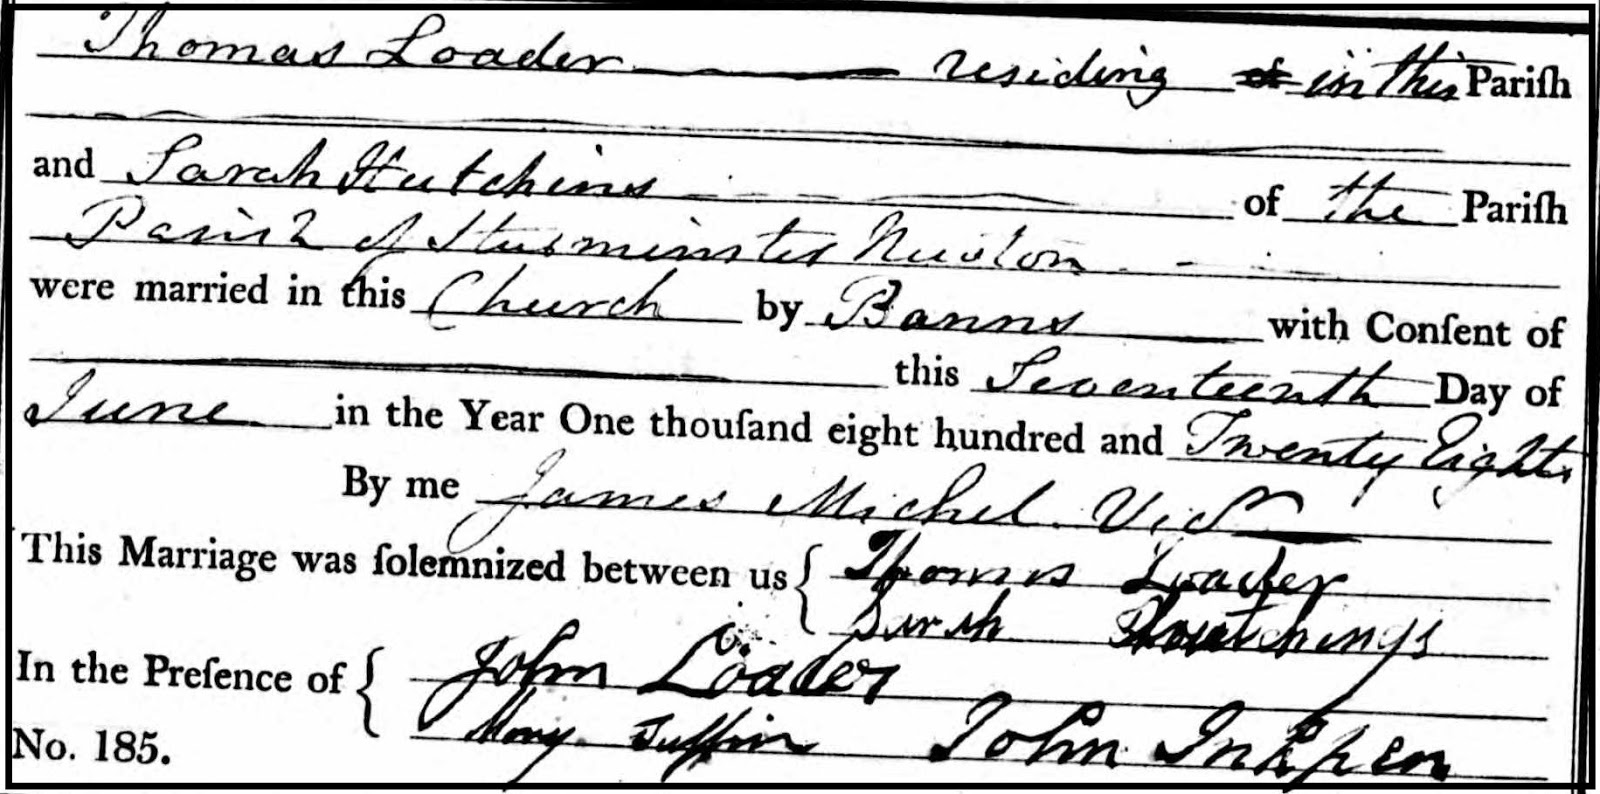 Thomas Loader residing of in this Pariſh
and Sarah Hutchins of the Pariſh
Parish of Sturminster Newton
were married in this Church by Banns with Conſent of
this Seventeenth Day of
June in the Year One thouſand eight hundred and Twenty Eight
By me James Michel Vicr
This Marriage was ſolemnized between us { Thomas Loader
Sarah Houtchings
In the Preſence of { John Loader
Mary Juffin John Inkpen
No. 185.